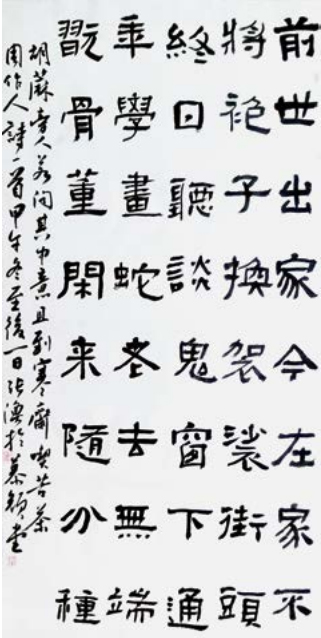 前世出家今在家不
將袍子換袈裟街頭
終日聽談鬼窗下通
年學畫蛇老去無端
翫骨董閑来随分種
胡蔴旁人若問其中意且到寒齋喫苦茶
周作人詩一首甲午冬至後一日張於慕顏堂